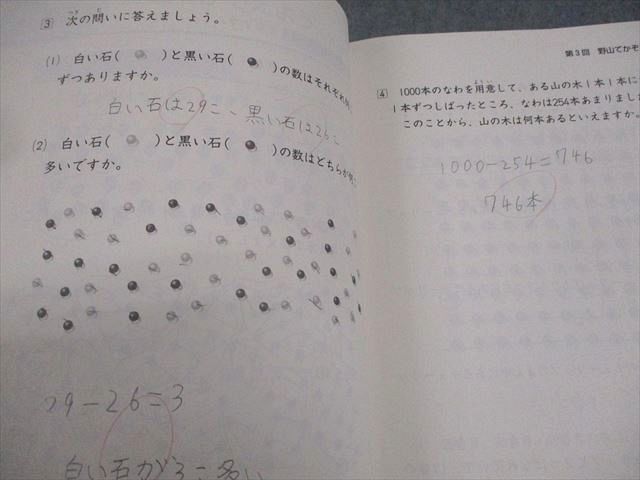 3 次の問いに答えましょう。
(1) 白い石( )と黒い石( )の数はそれぞれ
ずつありますか。
白い石は29こ、黒い石は26こ
(2) 白い石( )と黒い石( )の数はどちらが
多いですか。
29-26=3
白い石が3こ多い
第3回 野山でかぞ
4 1000本のなわを用意して、ある山の木1本1本に
1本ずつしばったところ、なわは254本あまりました
このことから、山の木は何本あるといえますか。
1000-254=746
746本